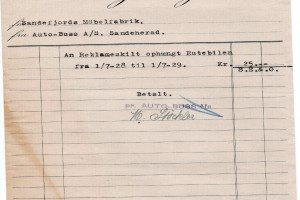 Sandefjords Møbelfabrik.
fra Auto-Buss A/S. Sandeherad.
An Reklameskilt ophungt Rutebilen
fra 1/7-28 til 1/7-29. Kr. 25.--
S.E.& O.
Betalt.
pr. AUTO BUSS A/S